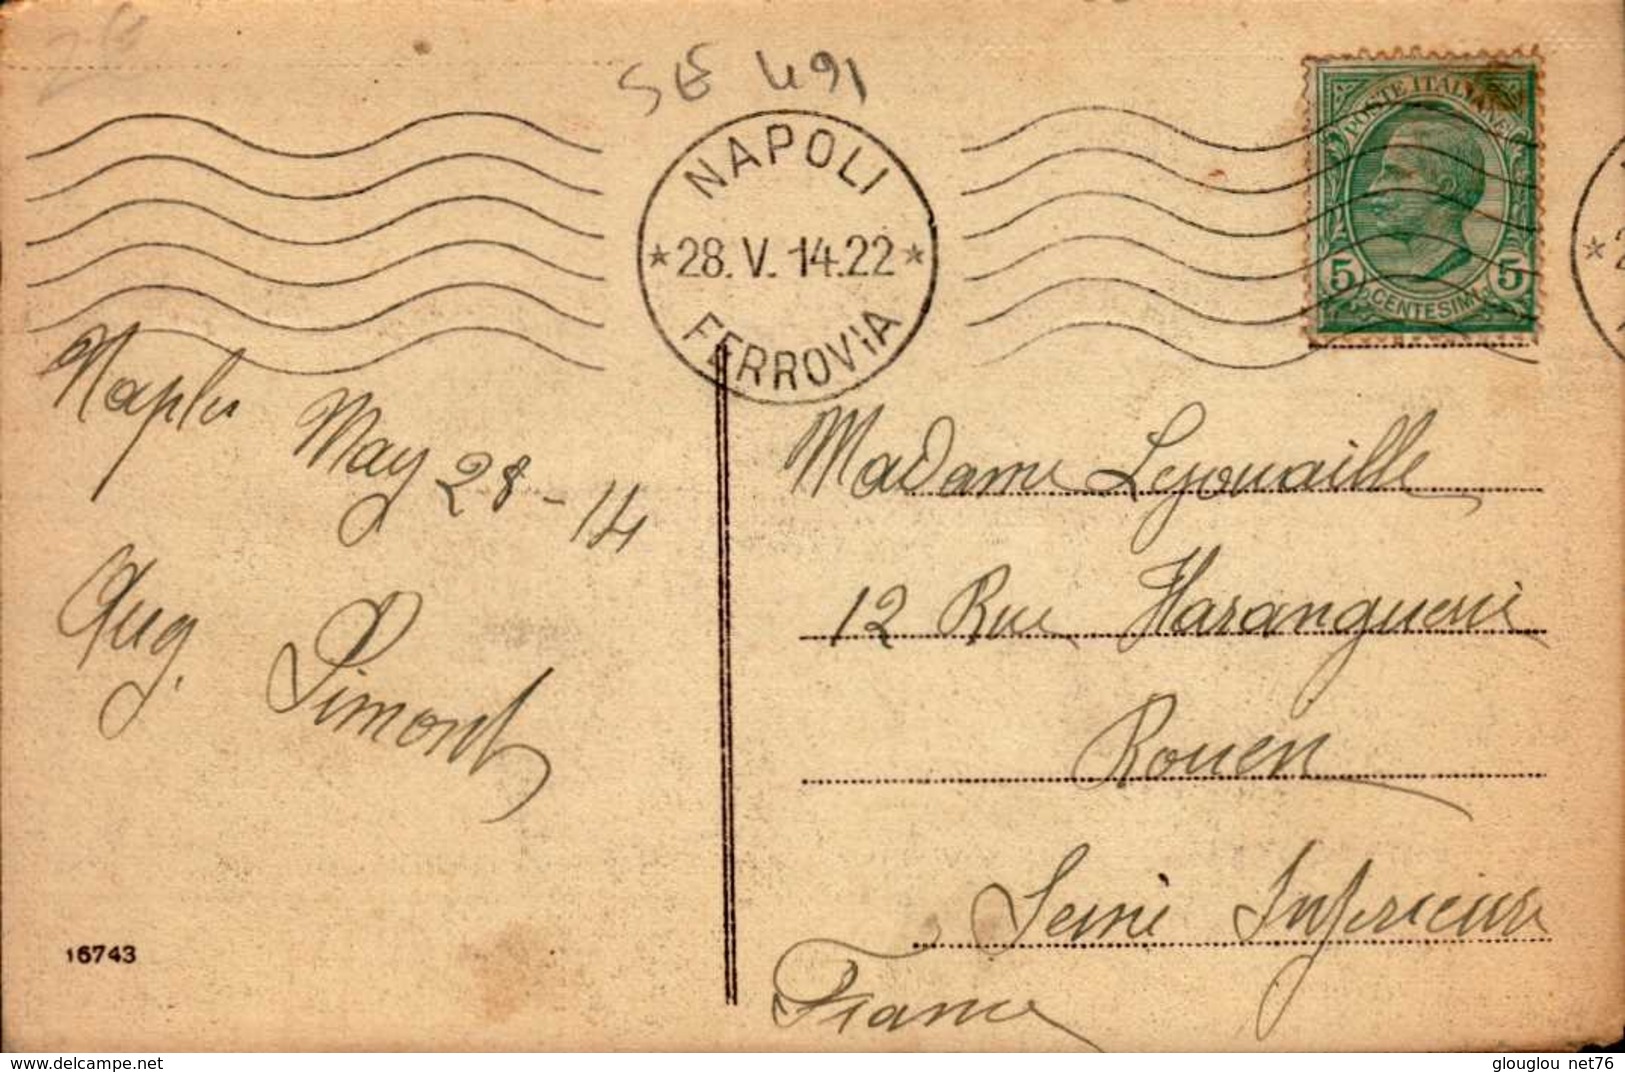 SE 491
NAPOLI
28.V.14.22
FERROVIA
POSTE ITALIANE
5 CENTESIMI 5
Naples May 28-14
Aug. Simont
Madame Lejouaille
12 Rue Haranguerie
Rouen
Seine Inferieure
France
16743
glouglou net76